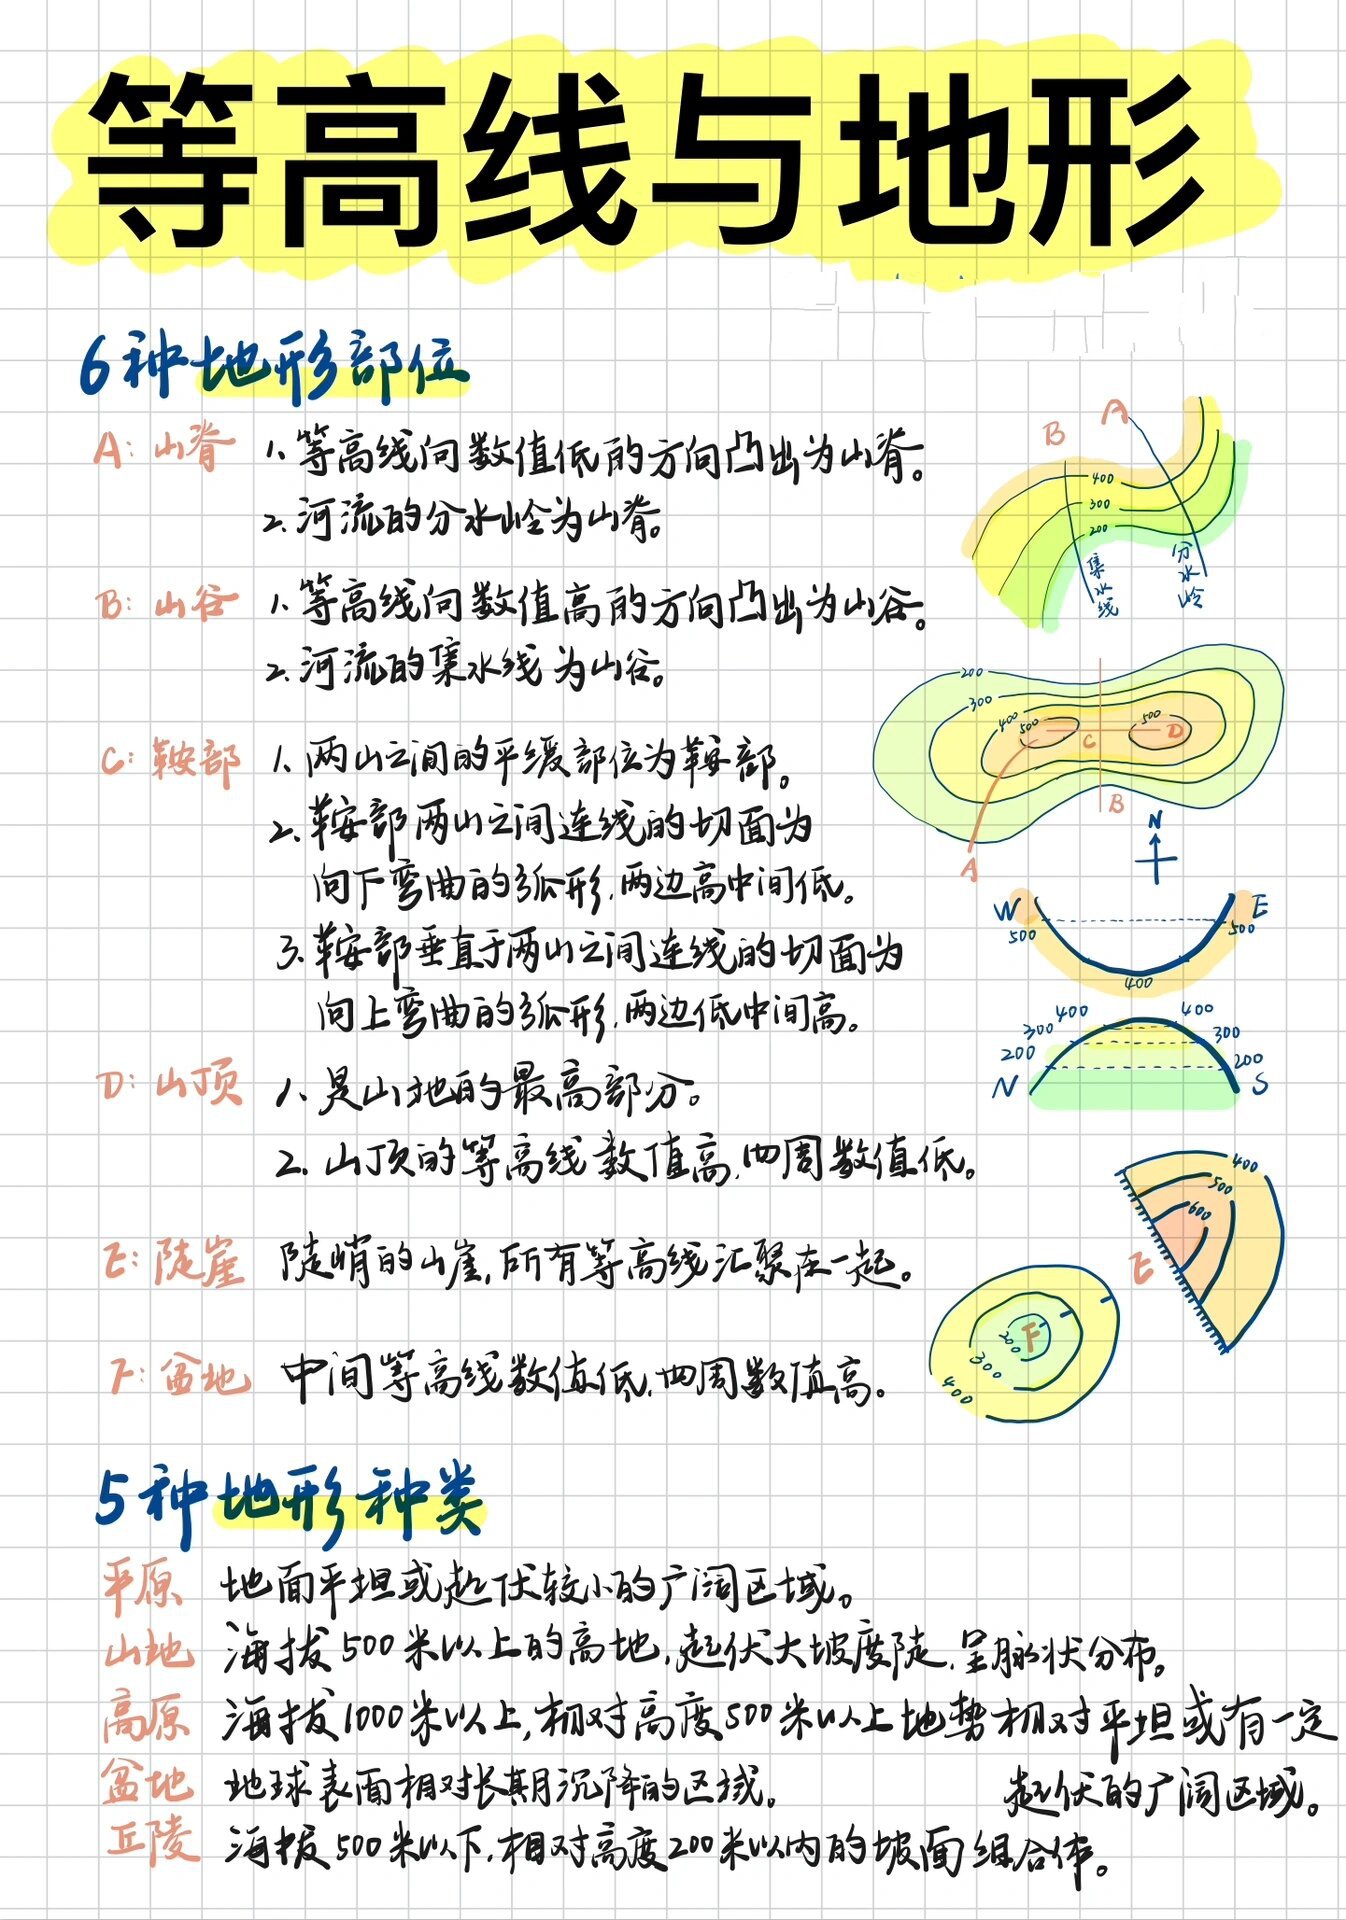 等高线与地形
6种地形部位
A: 山脊 1. 等高线向数值低的方向凸出为山脊。
2. 河流的分水岭为山脊。
B: 山谷 1. 等高线向数值高的方向凸出为山谷。
2. 河流的集水线为山谷。
C: 鞍部 1. 两山之间的平缓部位为鞍部。
2. 鞍部两山之间连线的切面为
向下弯曲的弧形,两边高中间低。
3. 鞍部垂直于两山之间连线的切面为
向上弯曲的弧形,两边低中间高。
D: 山顶 1. 是山地的最高部分。
2. 山顶的等高线数值高,四周数值低。
E: 陡崖 陡峭的山崖,所有等高线汇聚在一起。
F: 盆地 中间等高线数值低,四周数值高。
B A
400
300
200
集水线
分水岭
200
300
400 500 500
C D
B
A
N
W E
500 500
400
400 400
300 300
200 200
N S
400
500
600
E
F
200
300
400
5种地形种类
平原 地面平坦或起伏较小的广阔区域。
山地 海拔500米以上的高地,起伏大坡度陡,呈脉状分布。
高原 海拔1000米以上,相对高度500米以上地势相对平坦或有一定
起伏的广阔区域。
盆地 地球表面相对长期沉降的区域。
丘陵 海拔500米以下,相对高度200米以内的坡面组合体。